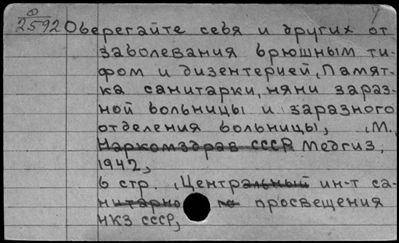 2592 Оберегайте себя и других от
заболевания брюшным ти-
фом и дизентерией, Памят-
ка санитарки, няни зараз-
ной больницы и заразного
отделения больницы, М.,
Наркомздрав СССР Медгиз,
1942,
6 стр. , Центральный ин-т са-
нитарно го просвещения
НКЗ СССР,